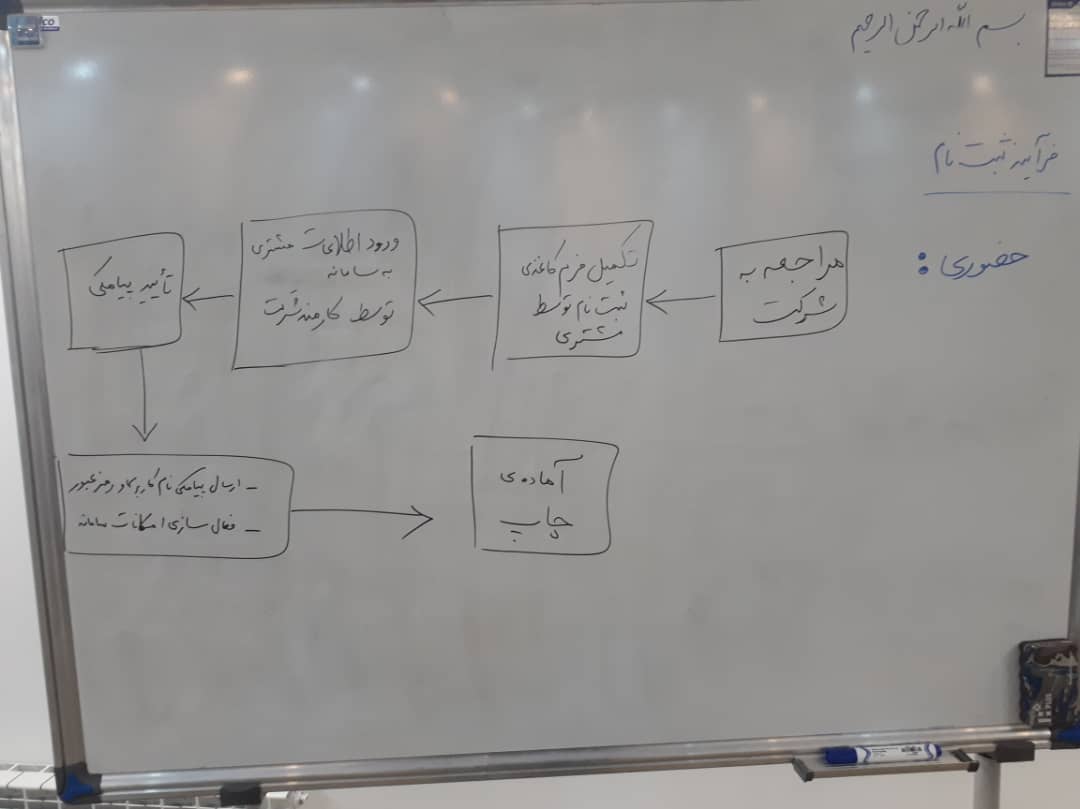 بسم الله الرحمن الرحیم
فرآیند ثبت نام
حضوری :
مراجعه به
شرکت
تکمیل فرم کاغذی
ثبت نام توسط
مشتری
ورود اطلاعات مشتری
به سامانه
توسط کارمند شرکت
تأیید پیامکی
– ارسال پیامکی نام کاربری و رمز عبور
– فعال سازی امکانات سامانه
آماده‌ی
چاپ